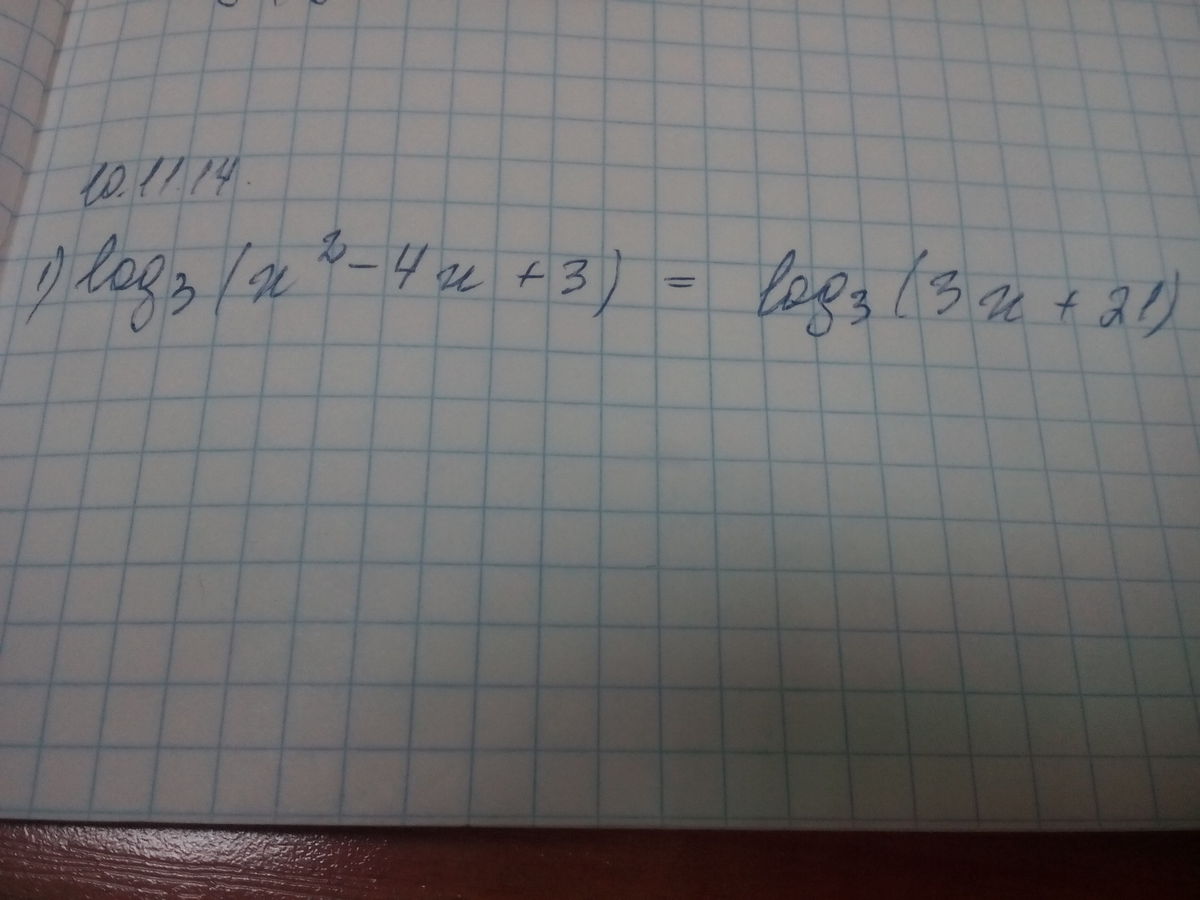 10.11.14.
1) log₃(x² - 4x + 3) = log₃(3x + 21)